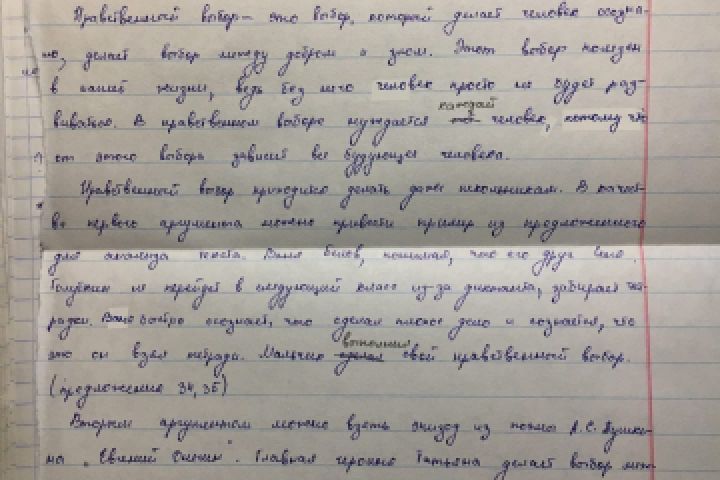 Нравственный выбор – это выбор, который делает человек осозна-
но, делает выбор между добром и злом. Этот выбор полезен
в нашей жизни, ведь без него человек просто не будет раз-
виваться. В нравственном выборе нуждается каждый человек, потому что
от этого выбора зависит все будующее человека.
Нравственный выбор приходится делать даже школьникам. В качест-
ве первого аргумента можно привести пример из предложенного
для анализа текста. Ваня Белов, понимая, что его друг
Голубкин не перейдет в следующий класс из-за диктанта, забирает тет-
ради. Ваня быстро осознает, что сделал плохое дело и сознается, что
это он взял тетради. Мальчик выполнил свой нравственный выбор.
(предложения 34, 35)
Вторым аргументом можно взять эпизод из поэмы А.С. Пушки-
на „Евгений Онегин". Главная героиня Татьяна делает выбор меж-